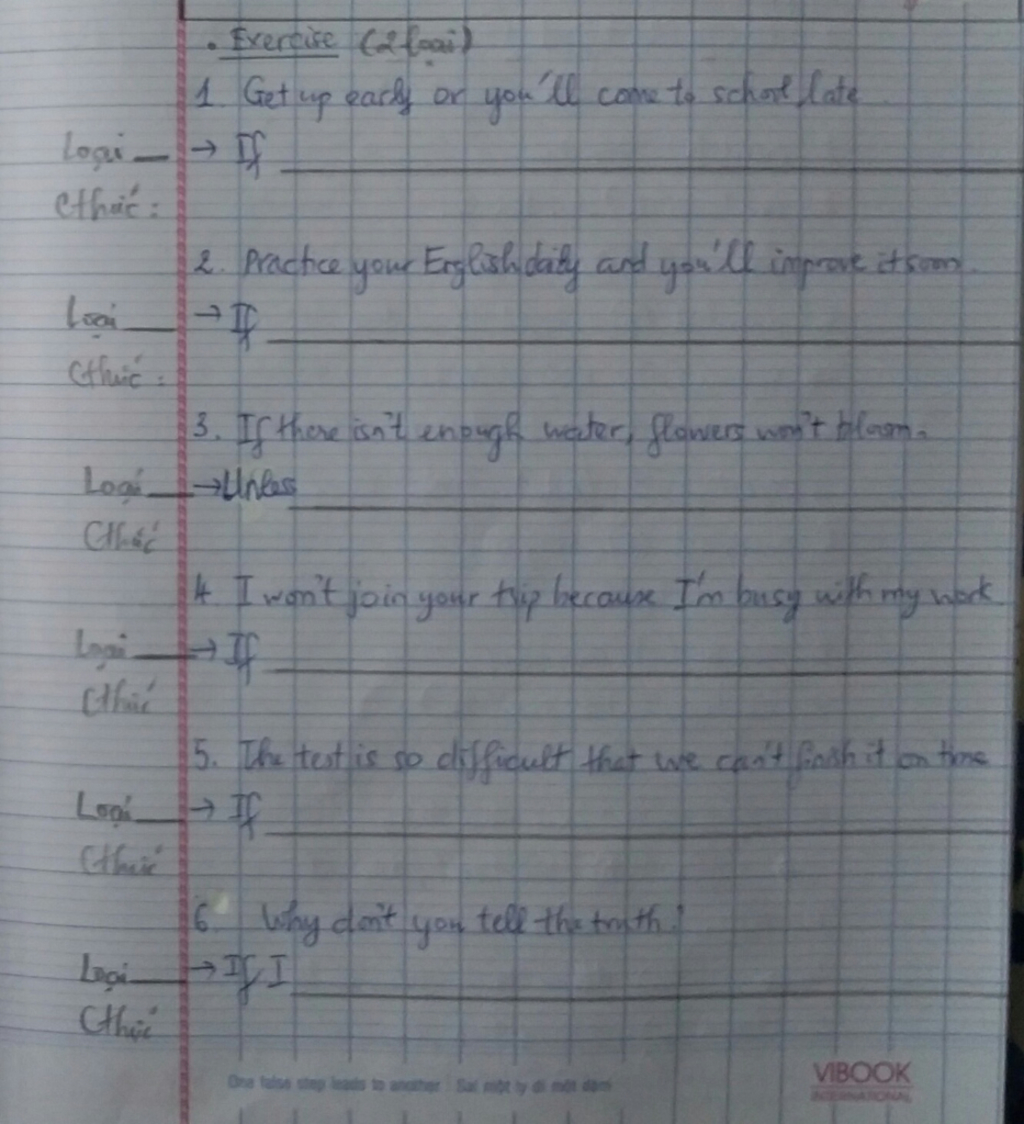 . Exercise (2 loại)
1. Get up early or you'll come to school late
Loại __ → If ____
Cthức :
2. Practice your English daily and you'll improve it soon.
Loại ____ → If ____
Cthức :
3. If there isn't enough water, flowers won't bloom.
Loại ____ → Unless ____
Cthức
4. I won't join your trip because I'm busy with my work
Loại ____ → If ____
Cthức
5. The test is so difficult that we can't finish it on time
Loại ____ → If ____
Cthức
6. Why don't you tell the truth!
Loại ____ → If I ____
Cthức
One false step leads to another Sai một ly đi một dặm
VIBOOK
INTERNATIONAL